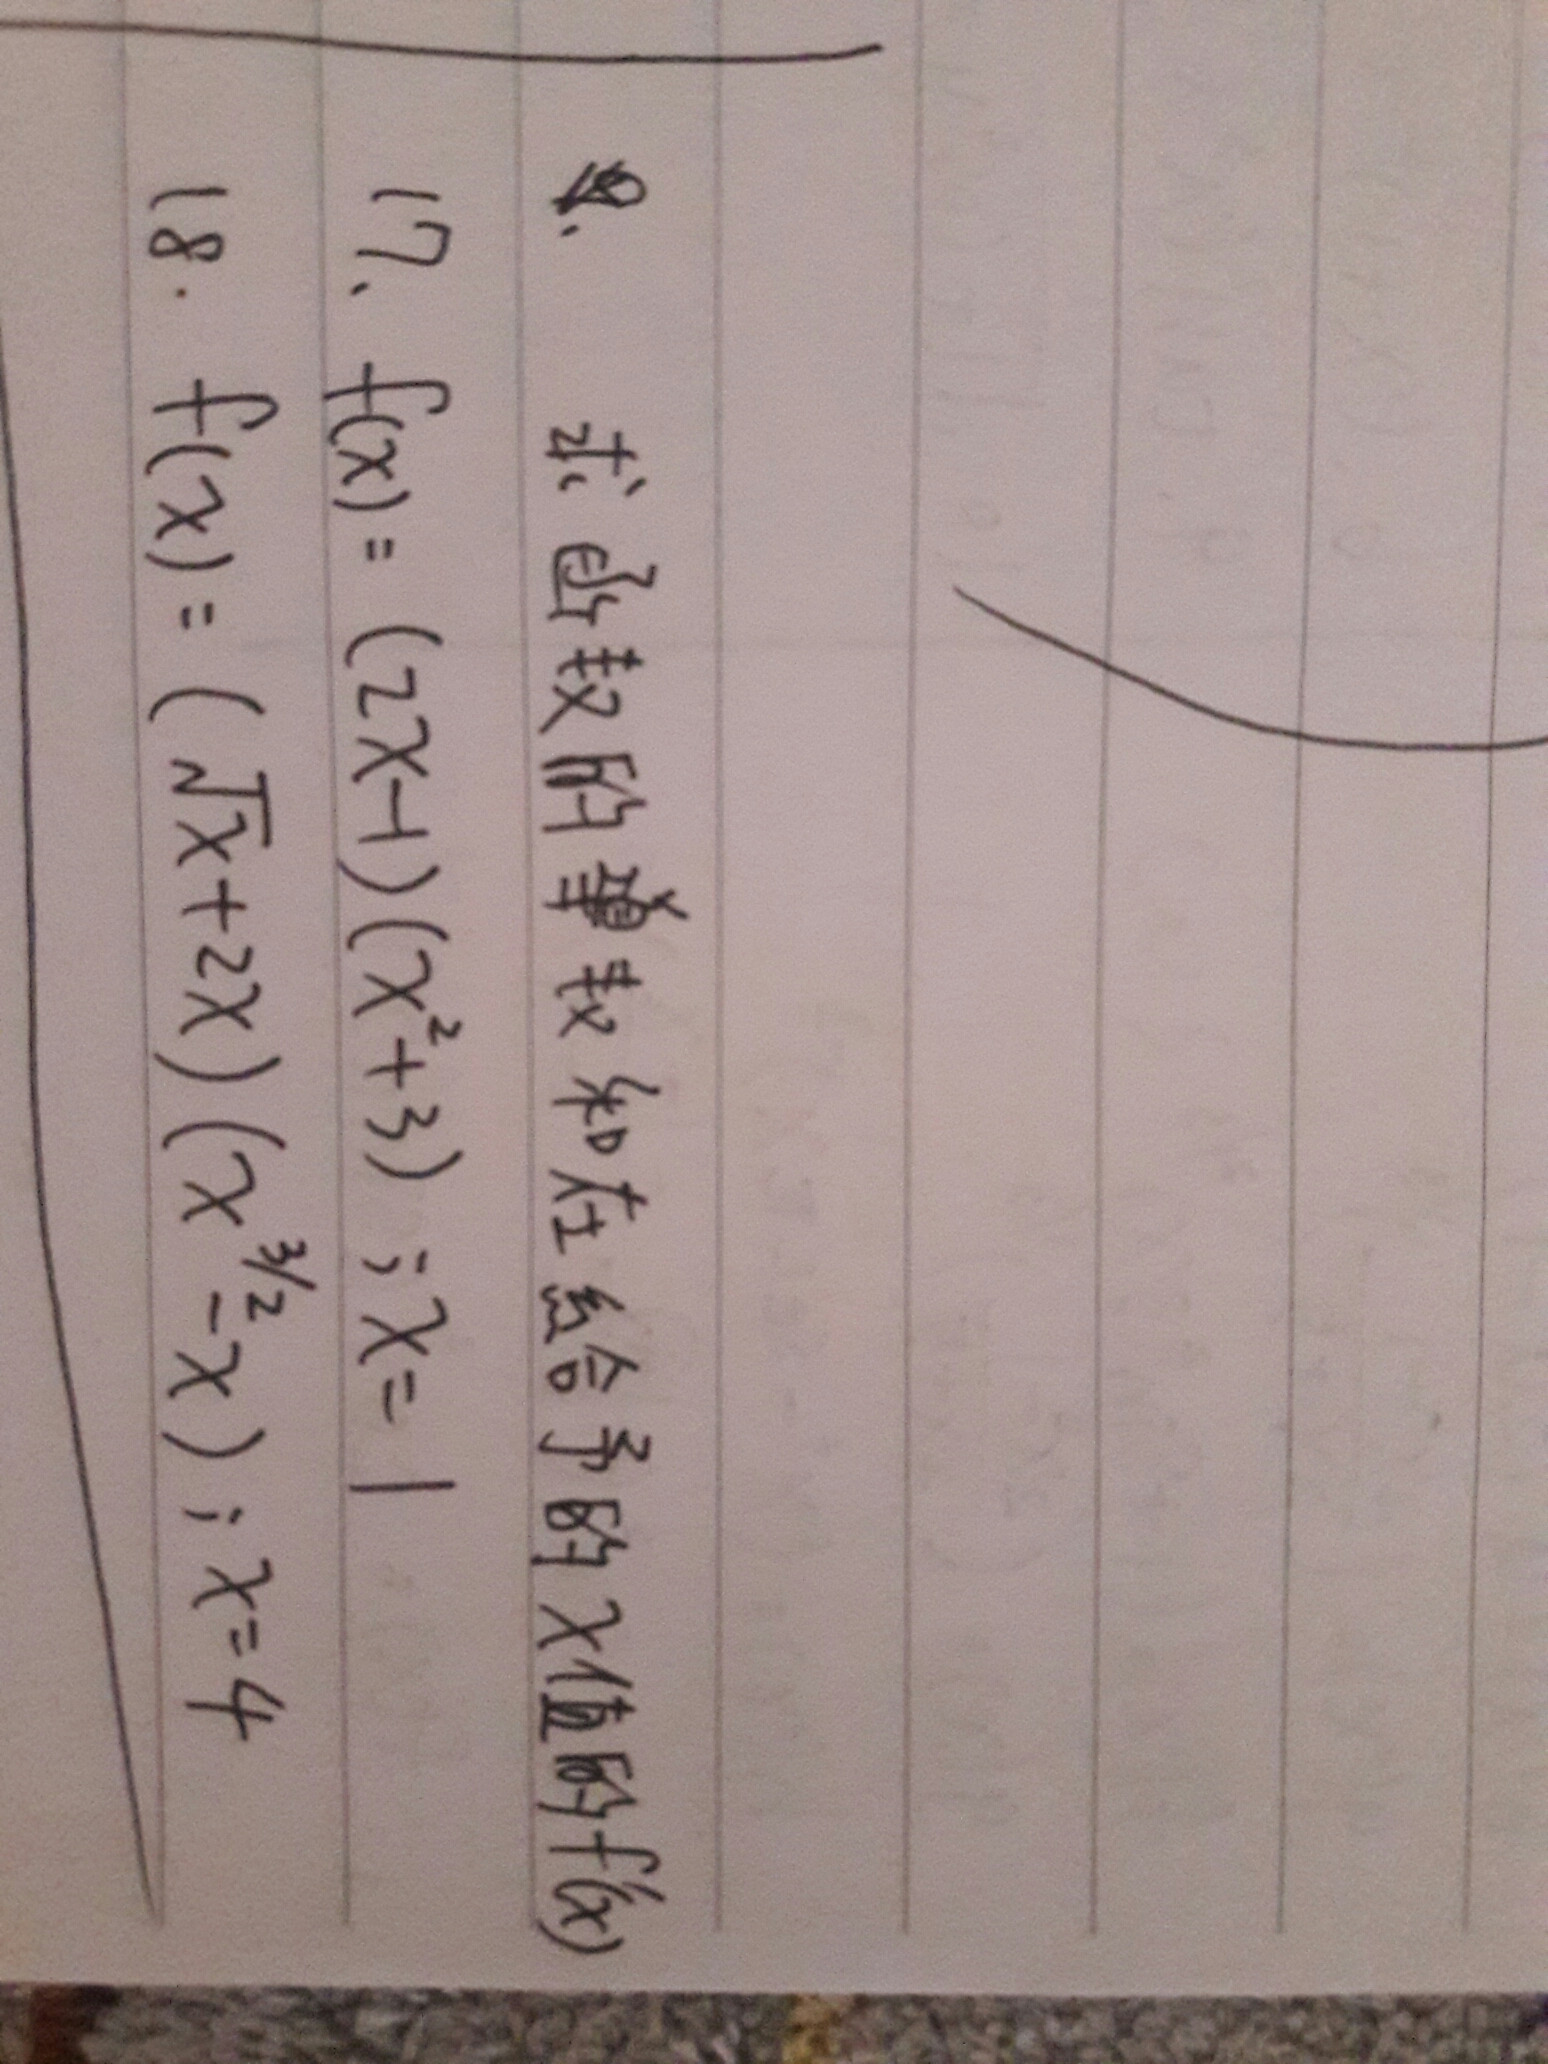 求函数的導数和在給予的x值的f'(x)
17. f(x) = (2x-1)(x²+3) ; x=1
18. f(x) = (√x+2x)(x^3/2-x) ; x=4